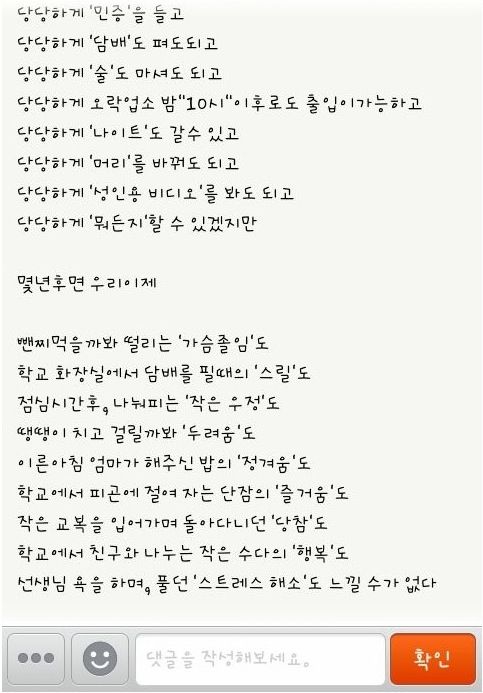 당당하게 '민증'을 들고
당당하게 '담배'도 펴도되고
당당하게 '술'도 마셔도 되고
당당하게 오락업소 밤"10시"이후로도 출입이가능하고
당당하게 '나이트'도 갈수 있고
당당하게 '머리'를 바꿔도 되고
당당하게 '성인용 비디오'를 봐도 되고
당당하게 '뭐든지'할 수 있겠지만
몇년후면 우리이제
뺀찌먹을까봐 떨리는 '가슴졸임'도
학교 화장실에서 담배를 필때의 '스릴'도
점심시간후, 나눠피는 '작은 우정'도
땡땡이 치고 걸릴까봐 '두려움'도
이른아침 엄마가 해주신 밥의 '정겨움'도
학교에서 피곤에 절여 자는 단잠의 '즐거움'도
작은 교복을 입어가며 돌아다니던 '당참'도
학교에서 친구와 나누는 작은 수다의 '행복'도
선생님 욕을 하며, 풀던 '스트레스 해소'도 느낄 수가 없다
댓글을 작성해보세요.
확인